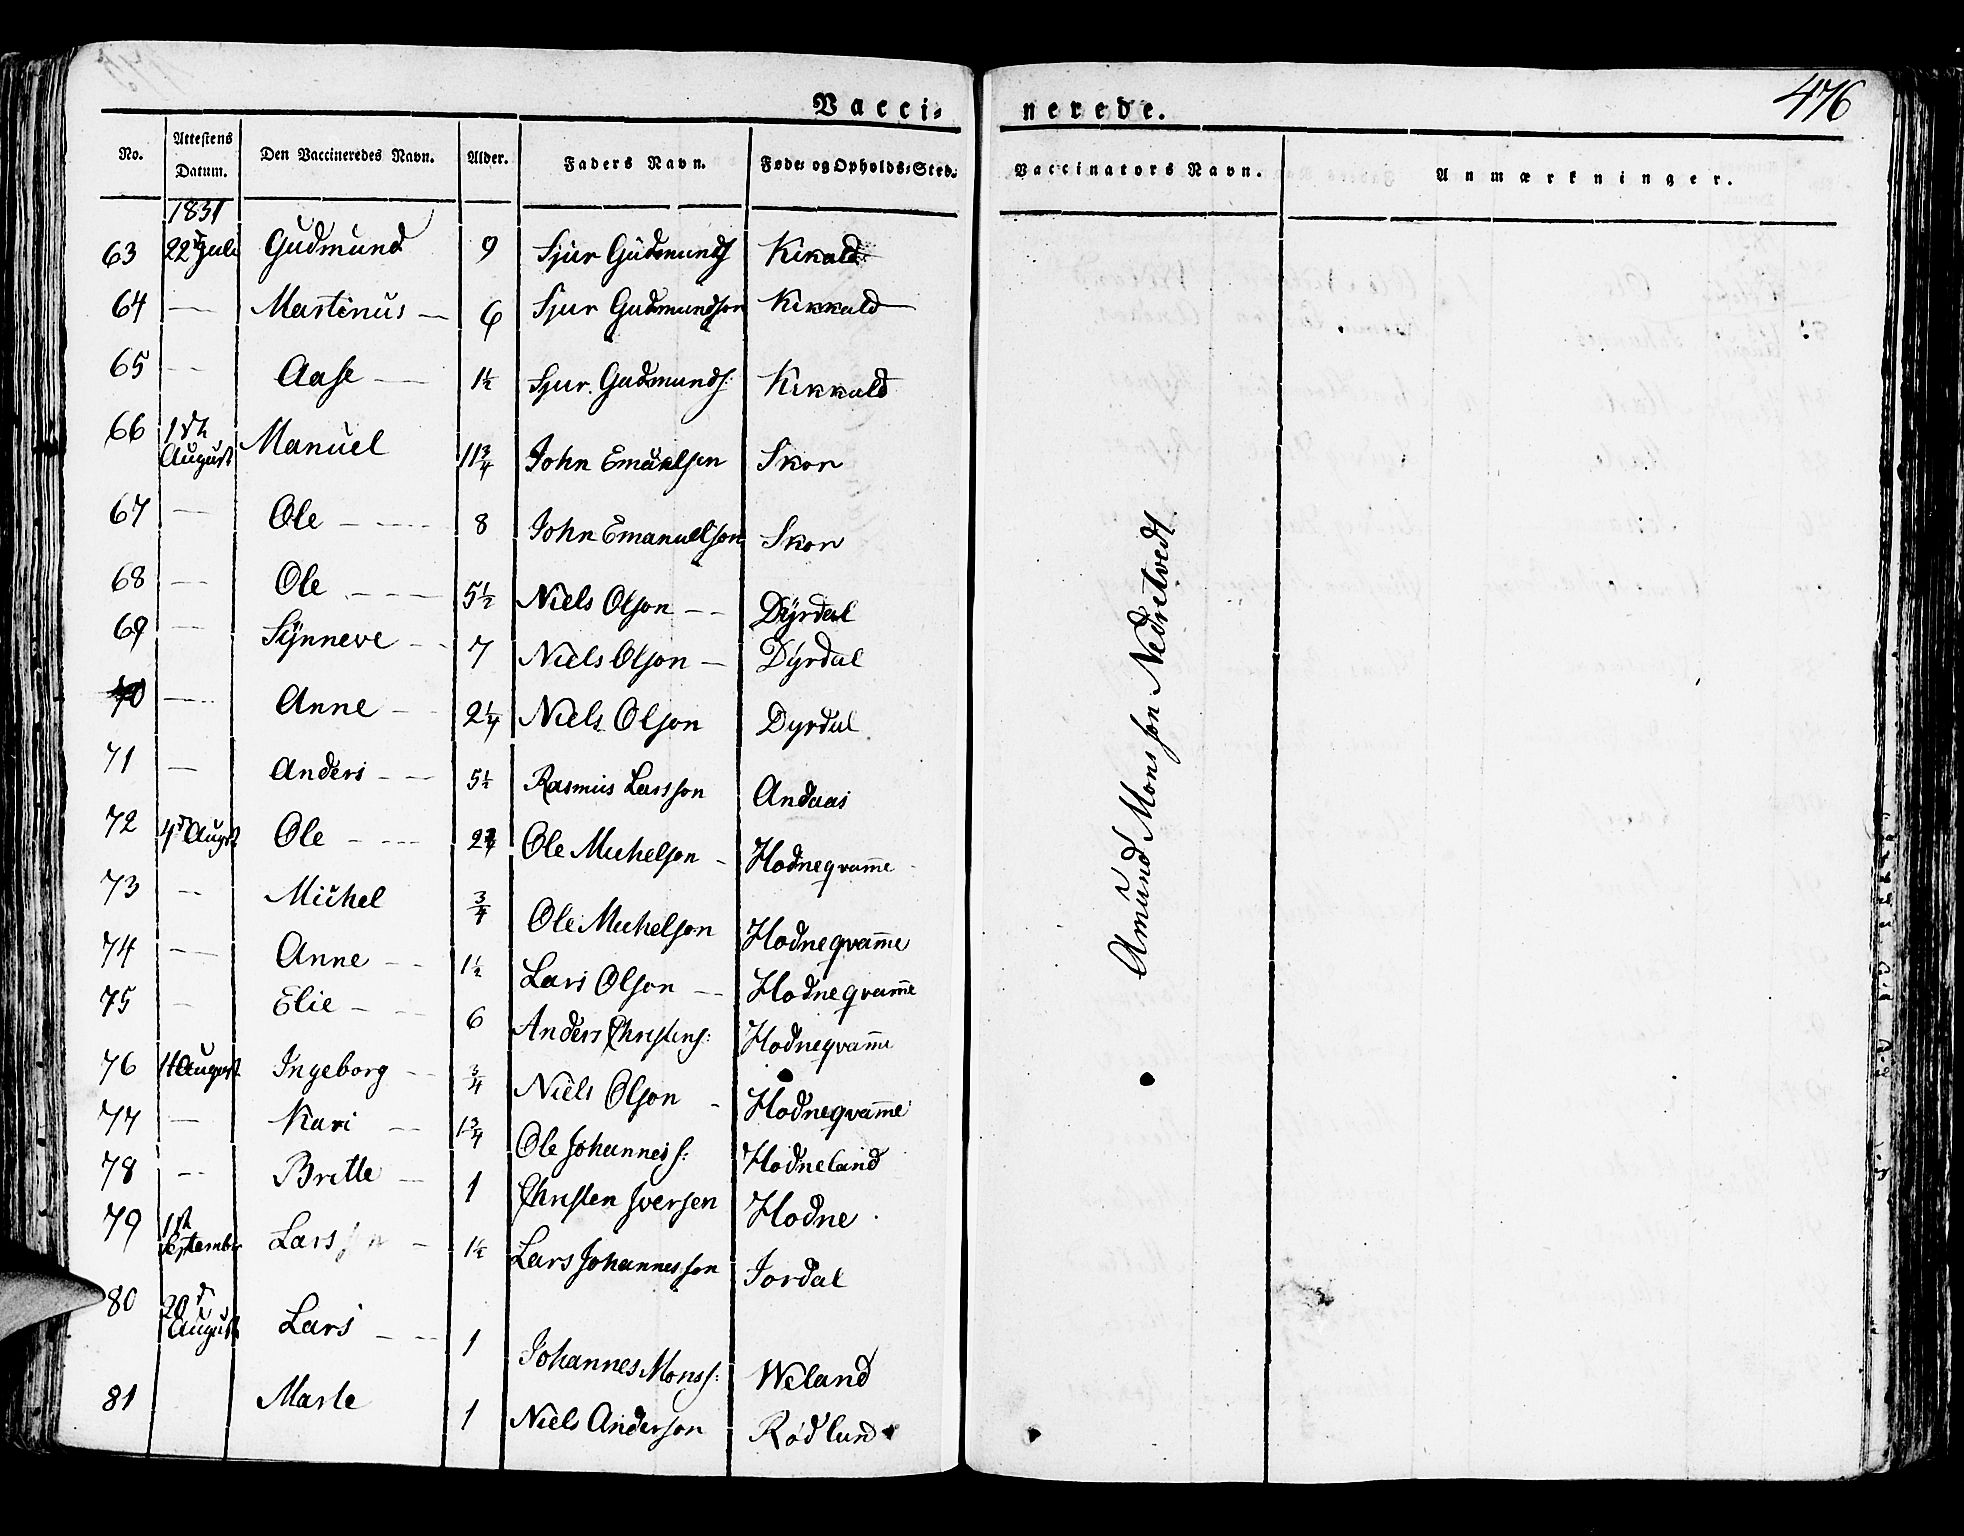 Vacci- nerede. 476
No. Attestens Datum. Den Vaccineredes Navn. Alder. Faders Navn. Føde- og Opholds-Sted. Vaccinators Navn. Anmærkninger.
1831
63 22d Juli Gudmund 9 Sjur Gudmunds Kikald
64 — Martinus — 6 Sjur Gudmundson Kikkald
65 — Aase — 1½ Sjur Gudmunds: Kikkald
66 1ste August Manuel 11¾ John Emanelsen Skor
67 — Ole — 8 John Emanuelson Skor
68 — Ole — 5½ Niels Olson — Dÿrdal
69 — Sÿnneve — 7 Niels Olson — Dÿrdal
70 — Anne — 2¼ Niels Olson Dyrdal
71 — Anders — 5½ Rasmus Larsson Andaas
72 4d August Ole — Ole Michelson — Hodneqvam̄e
73 — Michel ¾ Ole Michelson Hodneqvam̄e
74 — Anne — 1½ Lars Olson — Hodneqvam̄e
75 — Elie — 6 Anders Christens: Hodneqvam̄e
76 11 August Ingeborg — ¾ Niels Olson — Hodneqvam̄e
77 — Kari — 1¾ Ole Johanness: Hodneland
78 — Britte — 1 Christen Iversen Hodne
79 1st September Lars — 1½ Lars Johannesson Jordal
80 20d August Lars — 1 Johannes Monss: Weland
81 Marte 1 Niels Anderson Rødlund
Amund Monsson Nedretvedt